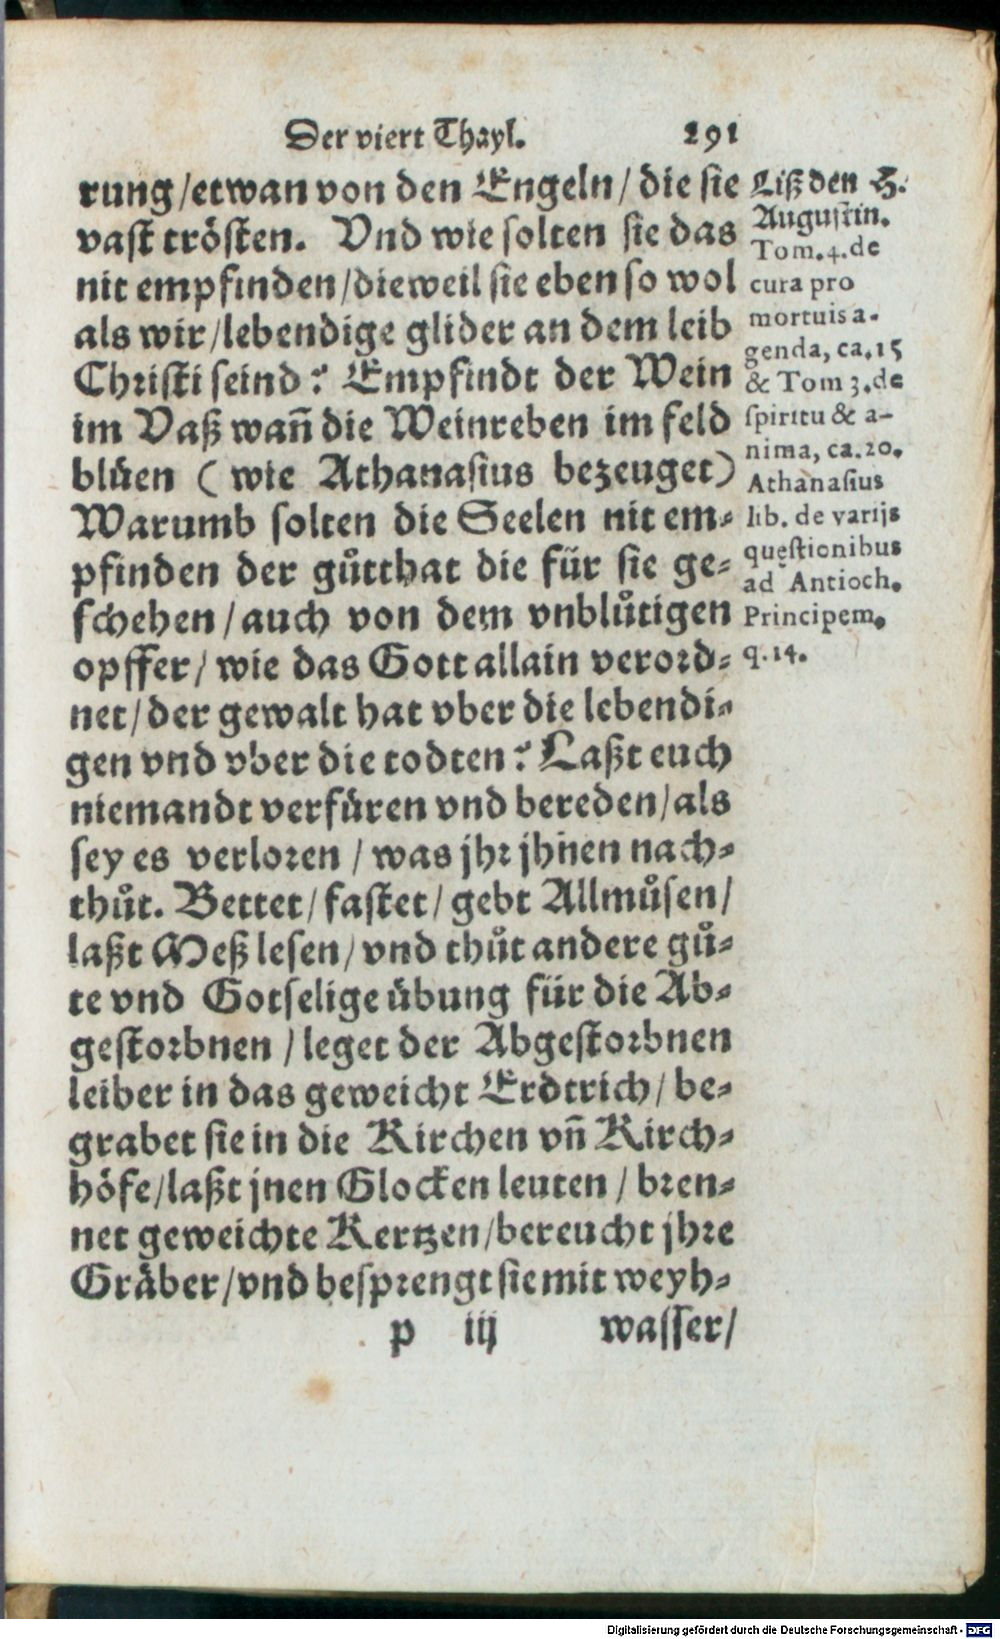 Der viert Thayl. 291
rung/etwan von den Engeln/die sie
vast trösten. Vnd wie solten sie das
nit empfinden/dieweil sie eben so wol
als wir/lebendige glider an dem leib
Christi seind? Empfindt der Wein
im Vaß wañ die Weinreben im feld
blüen (wie Athanasius bezeuget)
Warumb solten die Seelen nit em-
pfinden der gůtthat die für sie ge-
schehen/auch von dem vnblůtigen
opffer/wie das Gott allain verord-
net/der gewalt hat vber die lebendi-
gen vnd vber die todten? Laßt euch
niemandt verfüren vnd bereden/als
sey es verloren/was jhr jhnen nach-
thůt. Bettet/fastet/gebt Allmůsen/
laßt Meß lesen/vnd thůt andere gů-
te vnd Gotselige übung für die Ab-
gestorbnen/leget der Abgestorbnen
leiber in das geweicht Erdtrich/be-
grabet sie in die Kirchen vñ Kirch-
höfe/laßt jnen Glocken leuten/bren-
net geweichte Kertzen/bereucht jhre
Gräber/vnd besprengt sie mit weyh-
p iij wasser/
Liß den H.
Augustin.
Tom.4.de
cura pro
mortuis a-
genda, ca.15
& Tom 3.de
spiritu & a-
nima, ca.20.
Athanasius
lib. de varijs
questionibus
ad Antioch.
Principem.
q.14.
Digitalisierung gefördert durch die Deutsche Forschungsgemeinschaft - DFG